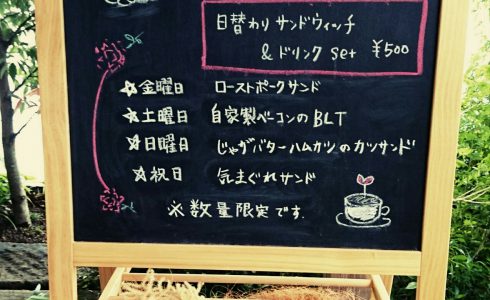 日替わりサンドウィッチ
&ドリンク set ¥500
☆金曜日 ローストポークサンド
☆土曜日 自家製ベーコンのBLT
☆日曜日 じゃがバターハムカツのカツサンド
☆祝日 気まぐれサンド
※数量限定です.